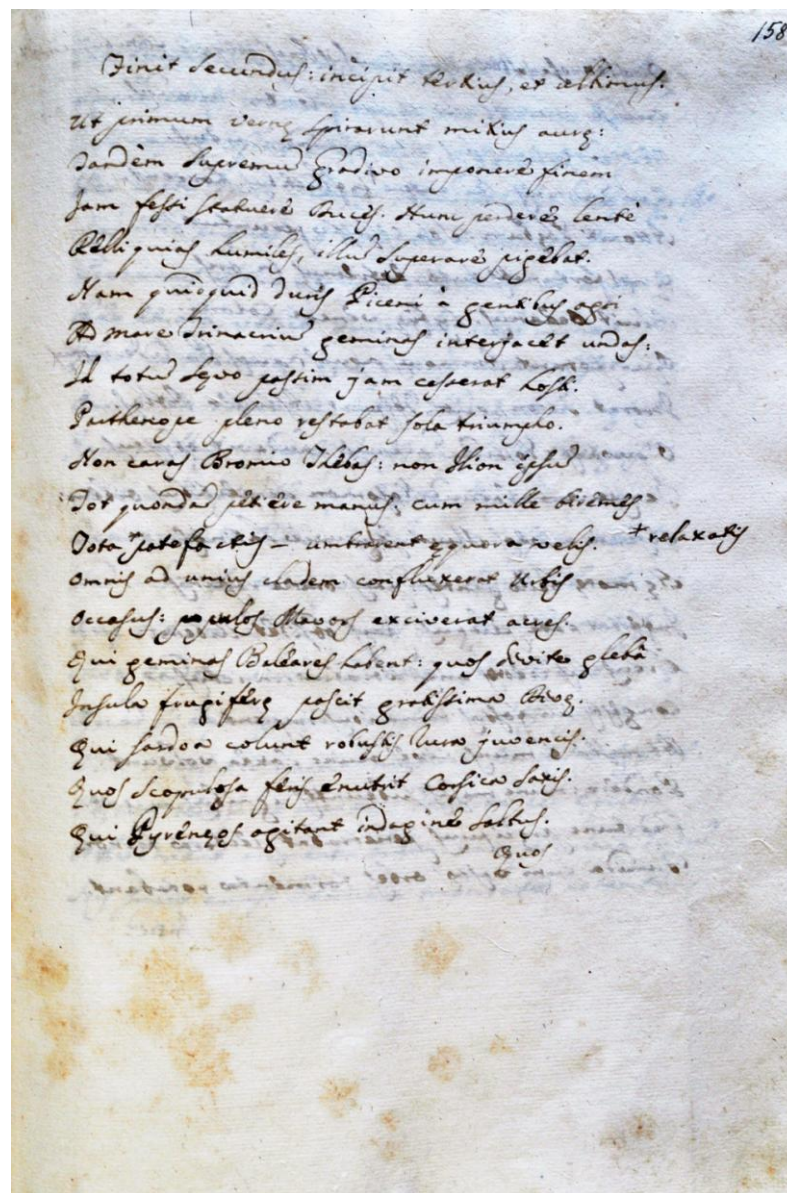 158
Finit secundus: incipit tertius, et ultimus.
Ut primum vernę spirarunt mitius aurę:
Tandem supremũ Gradivo imponere finem
Jam fessi statuere Duces. Hunc perdere lente
Relliquias humiles, illũ superare pigebat.
Nam quicquid duris Piceni à gentibus agri
Ad mare Trinacriũ geminas interjacet undas:
Id totũ sęvo passim jam cesserat hosti.
Parthenope pleno restabat sola triumpho.
Non caras Bromio Thebas: non Ilion ipsũ
Tot quondã petiere manus: cum mille biremes
Tota + patefactis – umbrarent ęquora velis. + relaxatis
Omnis ad unius cladem confluxerat Urbis
Occasus: populos Mavors exciverat acres.
Qui geminas Baleares habent: quos divite glebâ
Insula frugiferę pascit gratissima Divę.
Qui sardoa colunt robustis rura juvencis.
Quos scopulosa feris enutrit Corsica saxis.
Qui Pyrenęos agitant indagine saltus.
Quos